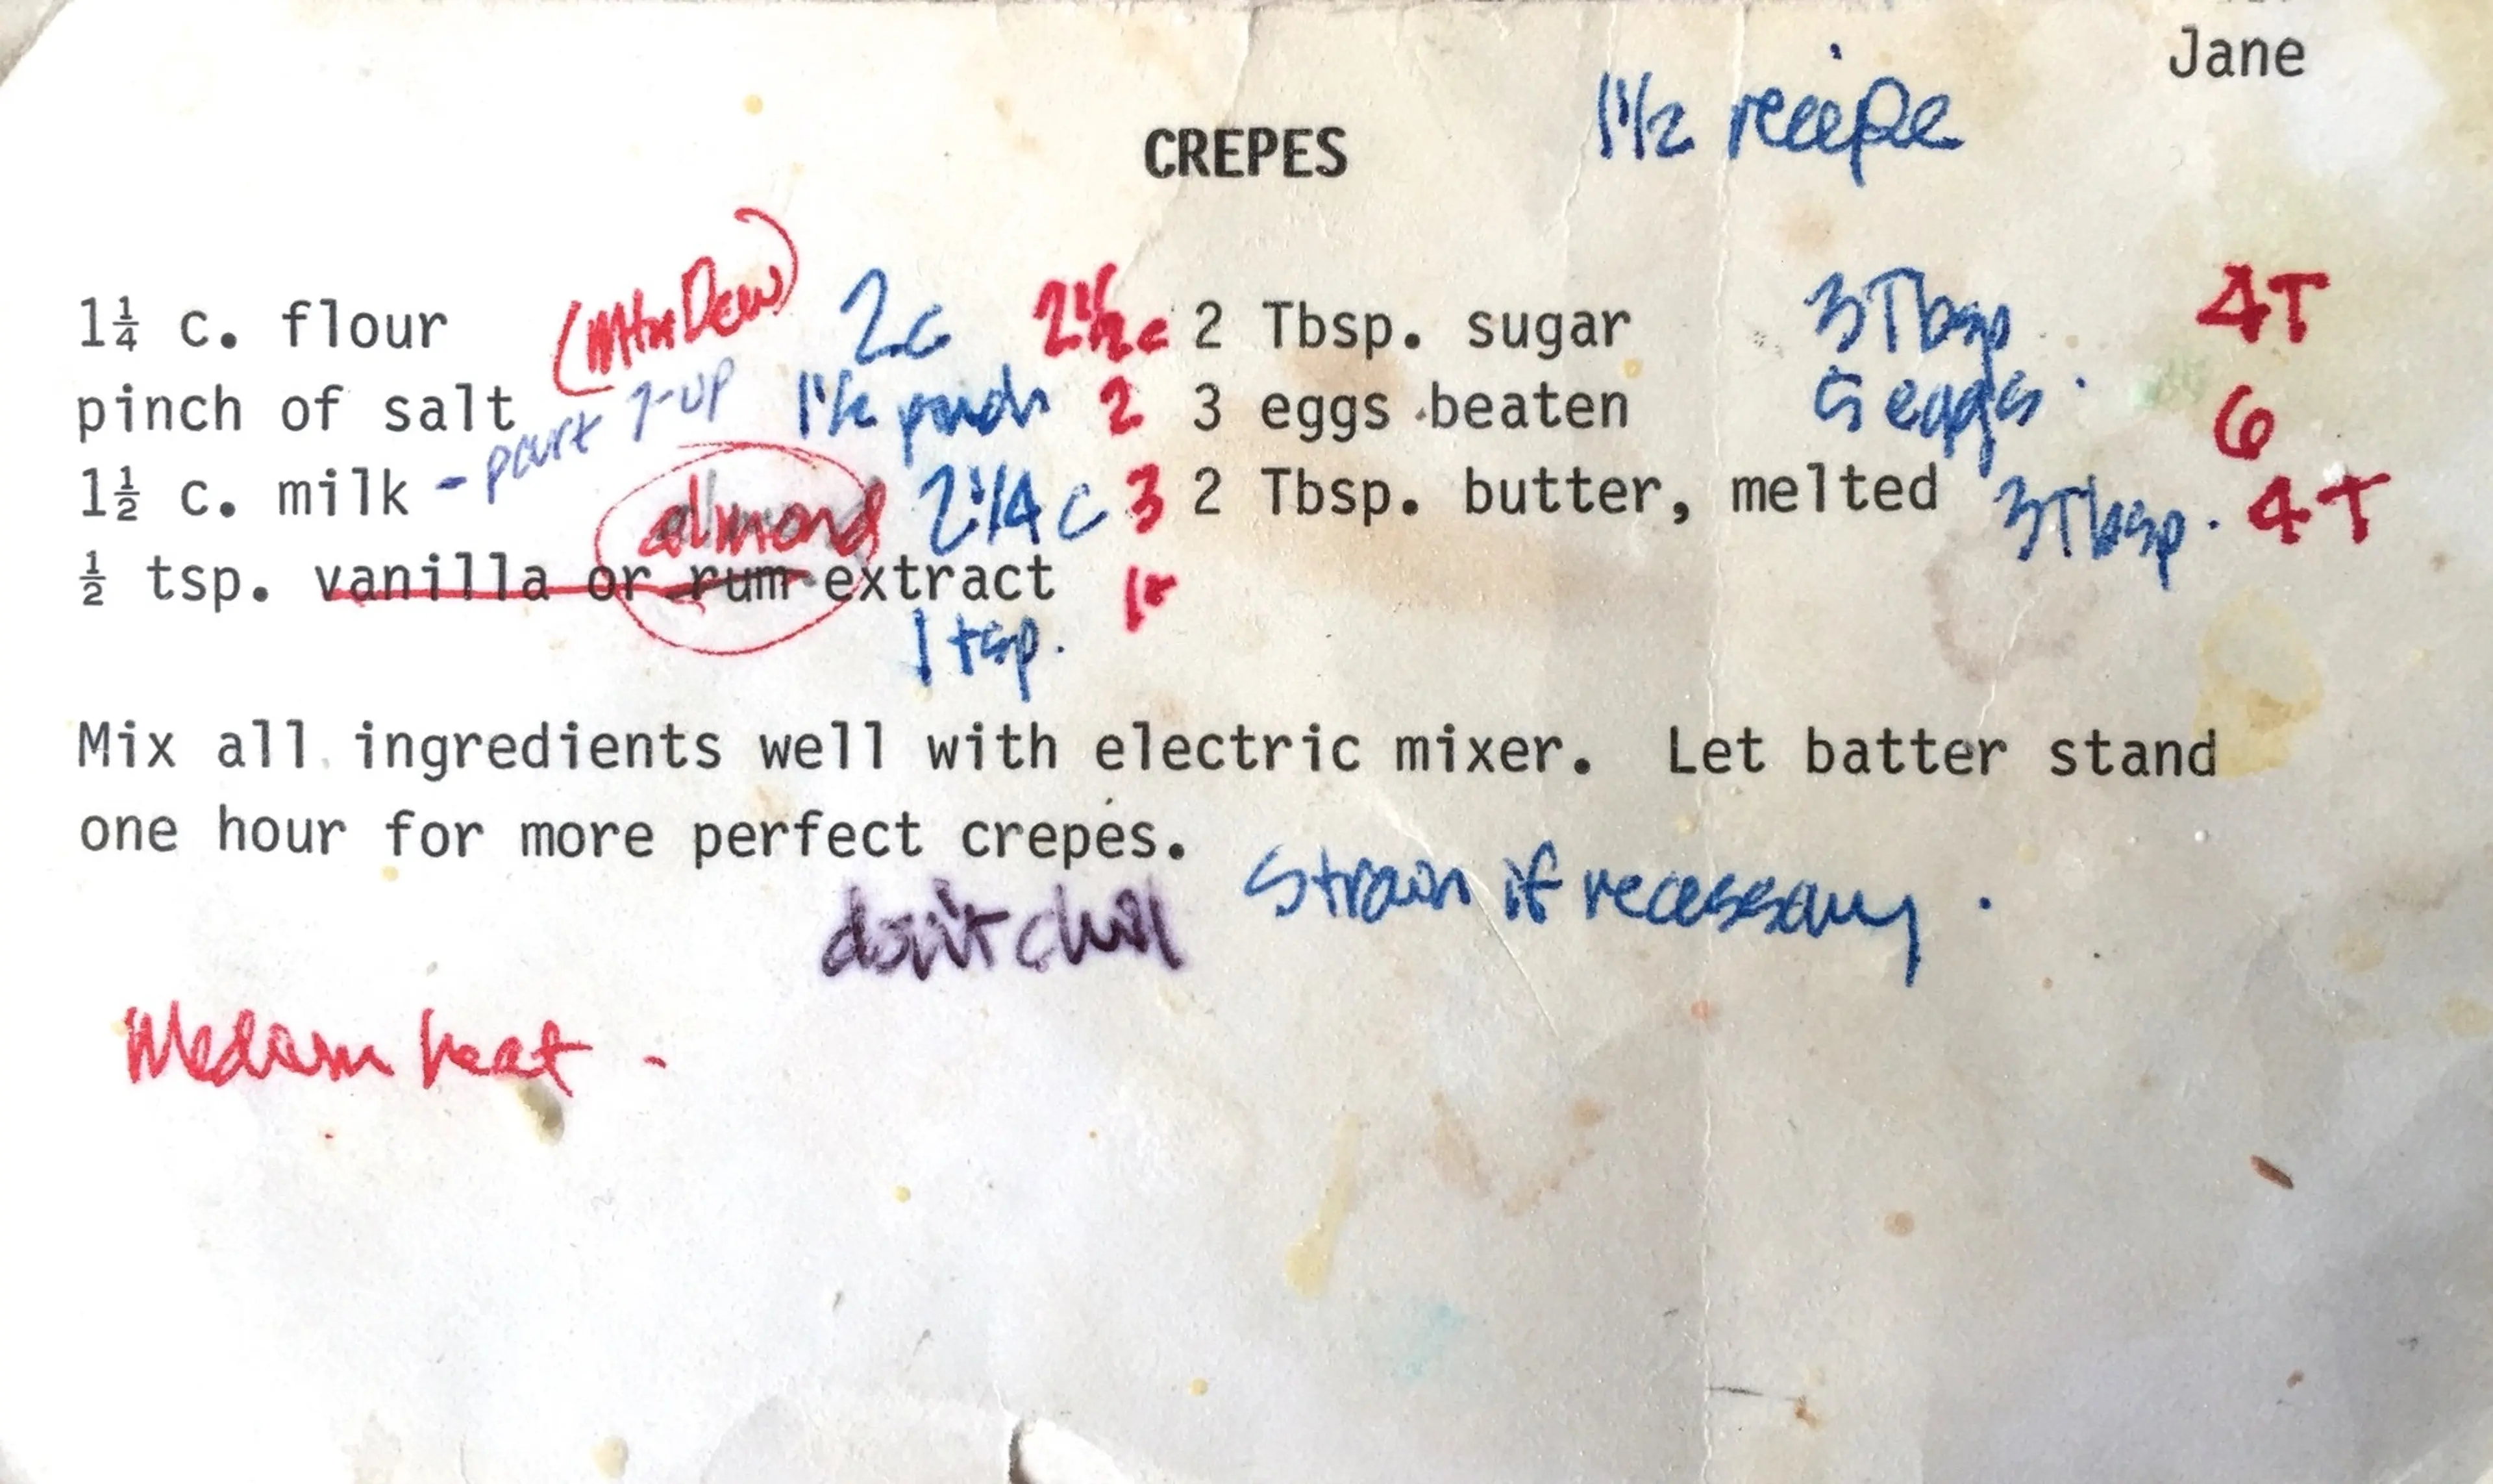 Jane
CREPES 1 1/2 recipe
1¼ c. flour (Mtn Dew) 2c 2 1/2 c 2 Tbsp. sugar 3 Tbsp. 4T
pinch of salt 1 1/2 pinch 2 3 eggs beaten 5 eggs. 6
1½ c. milk - part 7-up 2 1/4 c 3 2 Tbsp. butter, melted 3 Tbsp. 4T
almond
½ tsp. vanilla or rum extract
1 tsp.
Mix all ingredients well with electric mixer. Let batter stand
one hour for more perfect crepes.
don't chill strain if necessary.
Medium heat -